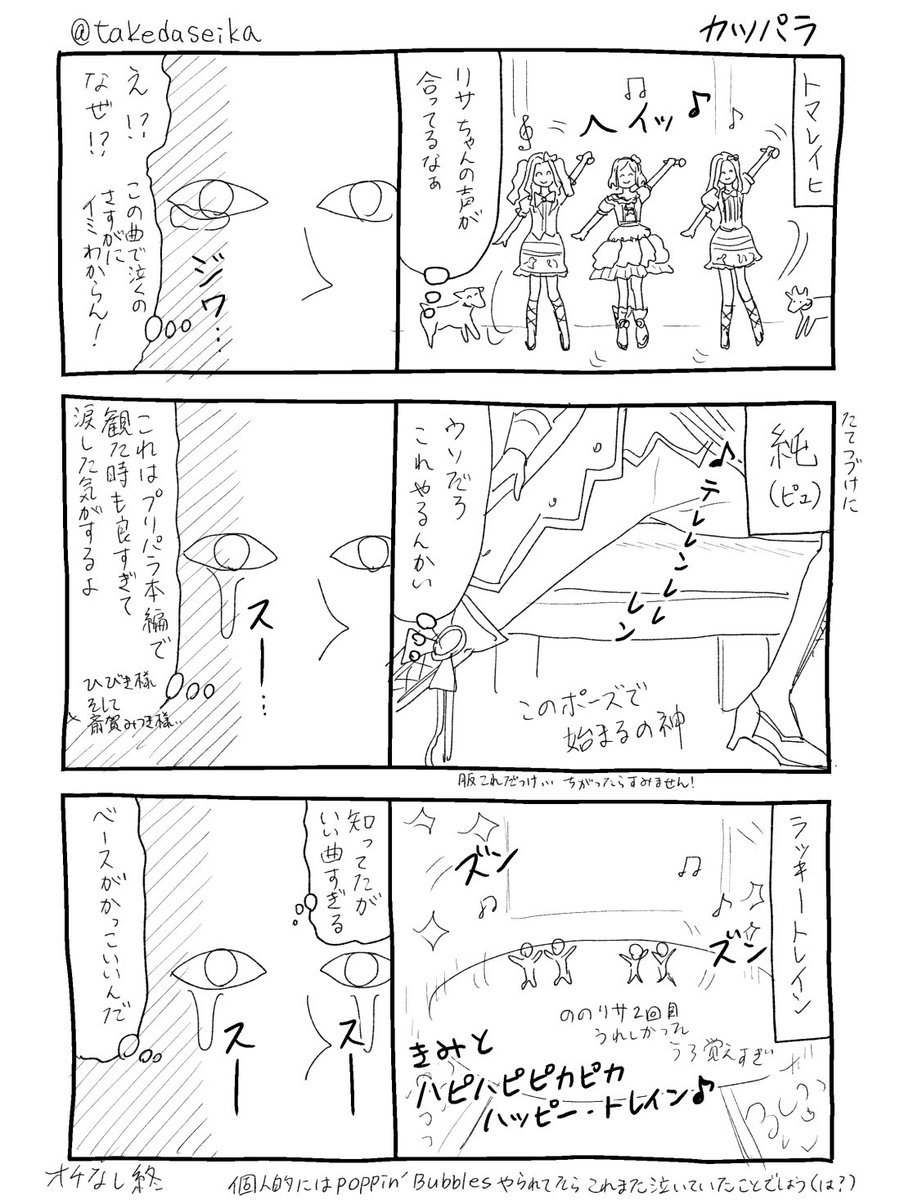 @takedaseika
カツパラ
トマレイヒ
ヘイッ♪
リサちゃんの声が
合ってるなぁ
え!?
なぜ!?
この曲で泣くの
さすがに
イミわからん!
ジワ…
たてつづけに
純
(ピュ)
♪テレレンレレ
レン
ウソだろ
これやるんかい
このポーズで
始まるの神
服これだっけ… ちがったらすみません!
これはプリパラ本編で
観た時も良すぎて
涙した気がするよ
スー…
ひびき様
そして
斎賀みつき様…
ラッキートレイン
ズン
ズン
ののリサ2回目
うれしかった
うろ覚えすぎ
きみと
ハピハピピカピカ
ハッピー・トレイン♪
知ってたが
いい曲すぎる
ベースがかっこいいんだ
スー
スー
オチなし終
個人的にはpoppin' Bubblesやられてたらこれまた泣いていたことでしょう(は?)